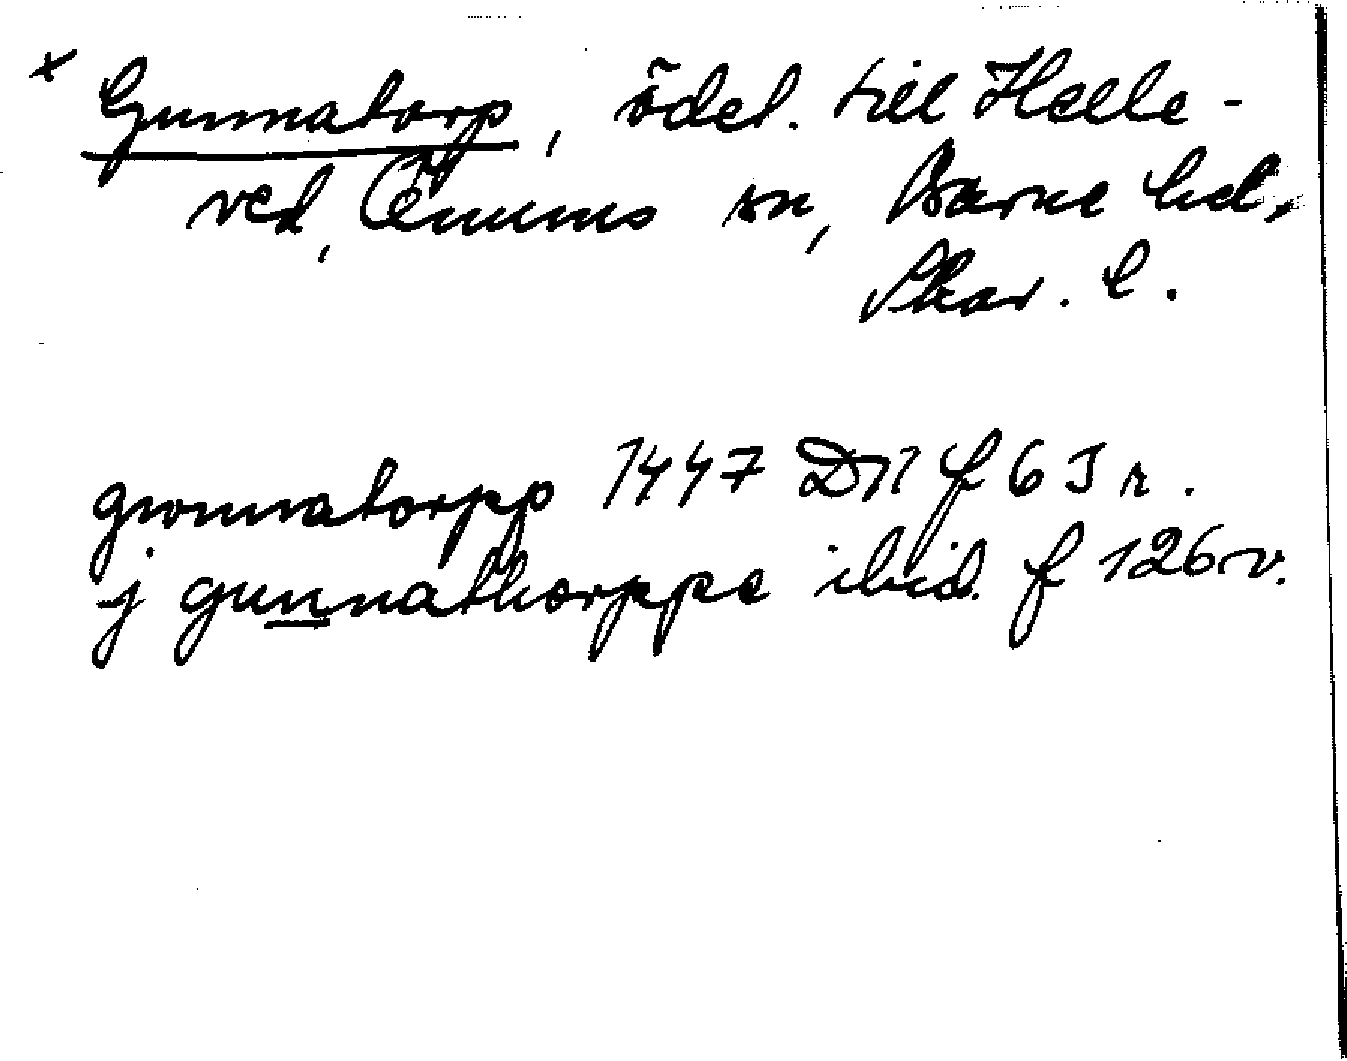 x Gunnatorp, ödel. till Helle-
ved, Önums sn, Barne hd,
Skar. l.
gwnnatorpp 1447 DN f 63 r.
j gunnathorppe ibid. f 126 v.